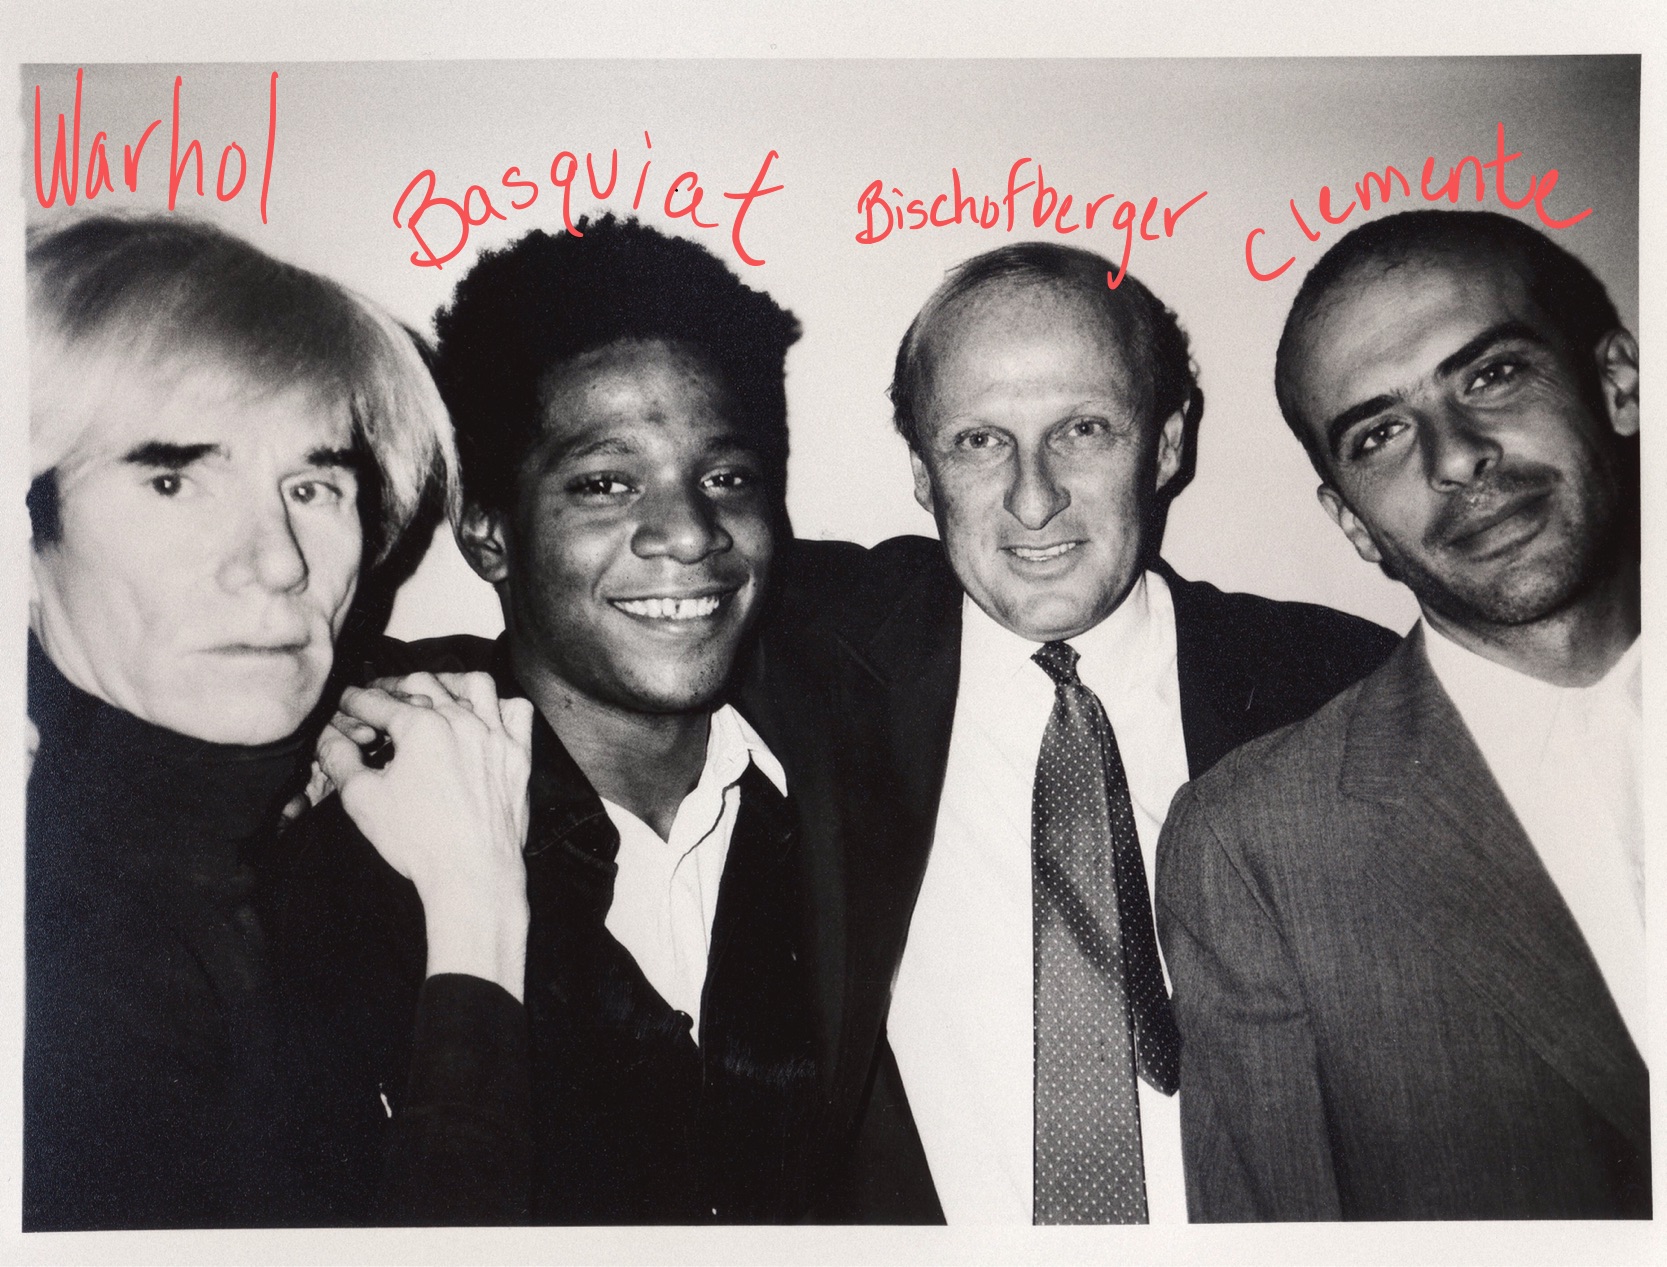 Warhol
Basquiat
Bischofberger
Clemente